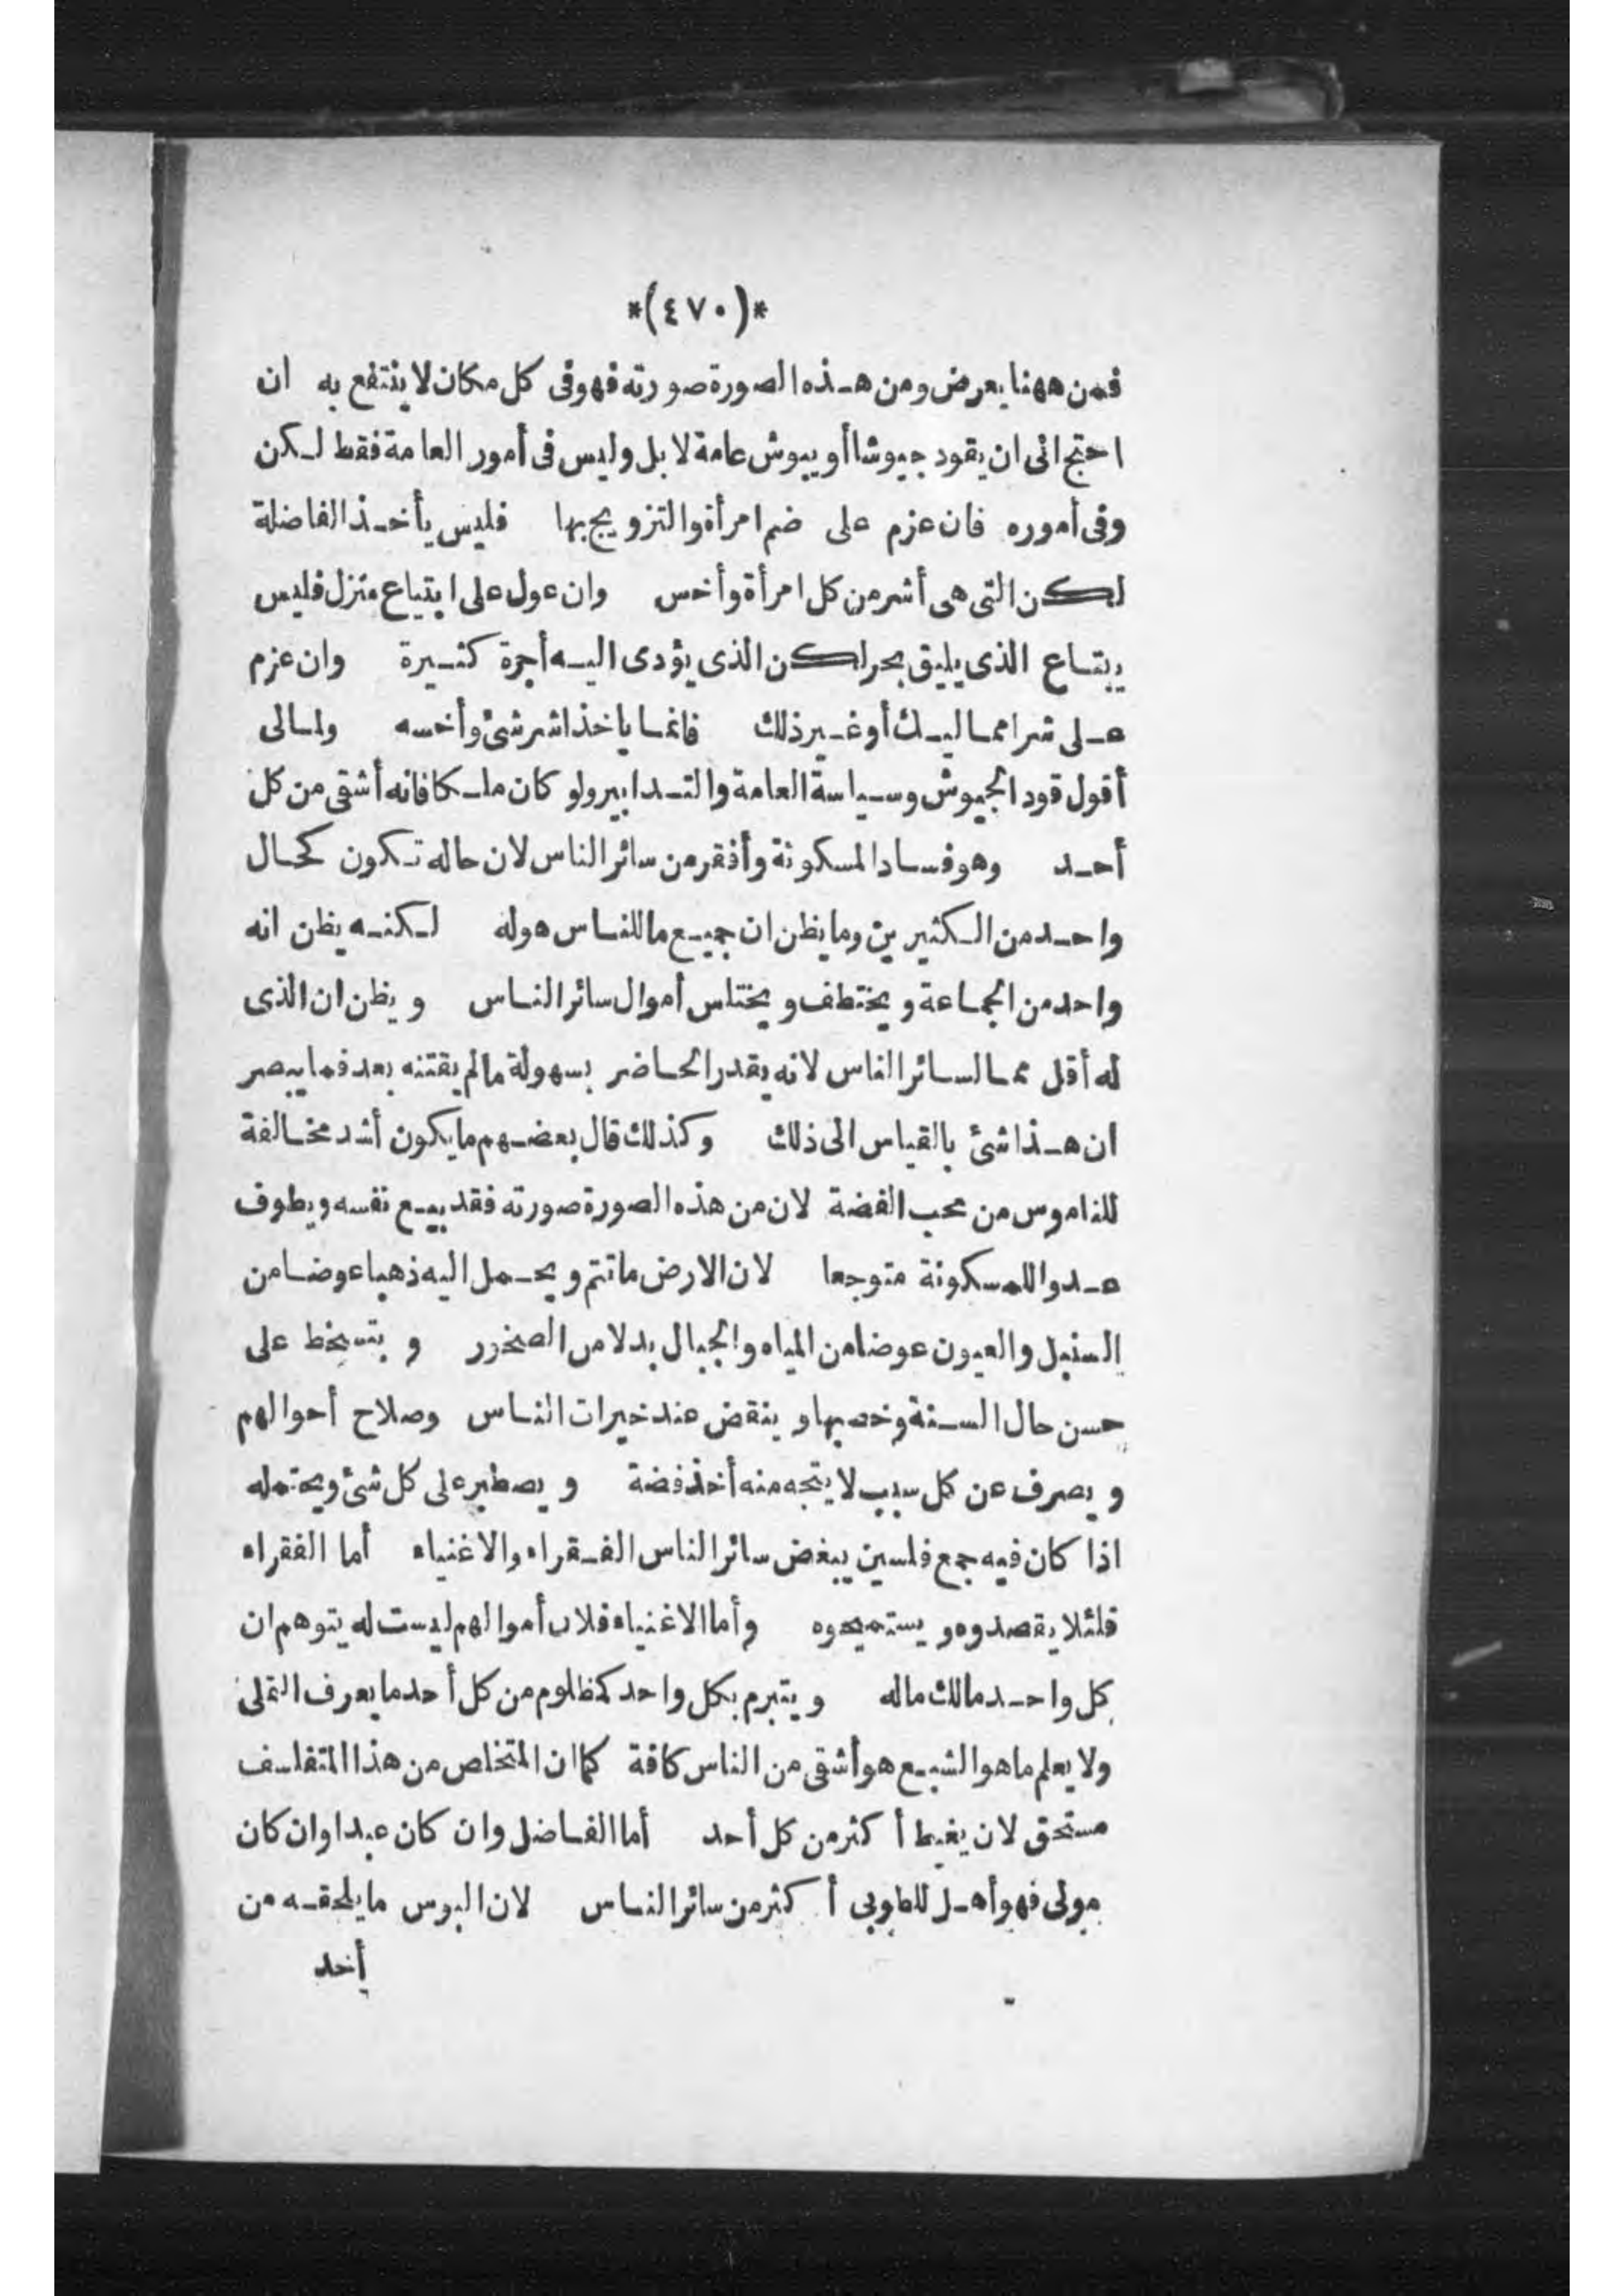 *(٤٧٠)*
فمن ههنا يعرض ومن هذه الصورة صورته فهو فى كل مكان لا ينتفع به ان
احتج الى ان يقود جيوشا أو يبوش عامة لا بل وليس فى أمور العامة فقط لكن
وفى أموره فان عزم على ضم امرأة والتزويج بها فليس يأخذ الفاضلة
لكن التى هى أشر من كل امرأة وأخس وان عول على ابتياع منزل فليس
يبتاع الذى يليق بحر لكن الذى يؤدى اليه أجرة كثيرة وان عزم
على شرا مماليك أو غير ذلك فانما ياخذ اشر شئ وأخسه ولم الى
أقول قود الجيوش وسياسة العامة والتدابير ولو كان ملكا فانه أشقى من كل
أحد وهو فساد المسكونة وأفقر من سائر الناس لان حاله تكون كحال
واحد من الكثيرين وما يظن ان جميع ما للناس هو له لكنه يظن انه
واحد من الجماعة ويختطف ويختلس أموال سائر الناس ويظن ان الذى
له أقل مما لسائر الناس لانه يقدر الحاضر بسهولة ما لم يقتنه بعد فما يبصر
ان هذا شئ بالقياس الى ذلك وكذلك قال بعضهم ما يكون أشد مخالفة
للناموس من محب الفضة لان من هذه الصورة صورته فقد يبيع نفسه ويطوف
عدوا للمسكونة متوجعا لان الارض ما تتم ويحمل اليه ذهبا عوضا من
السنبل والعيون عوضا من المياه والجبال بدلا من الصخور ويتسخط على
حسن حال السنة وخصبها وينقض عند خيرات الناس وصلاح أحوالهم
ويصرف عن كل سبب لا يتجه منه أخذ فضة ويصطبر على كل شئ ويحتمله
اذا كان فيه جمع فلسين يبغض سائر الناس الفقراء والاغنياء أما الفقراء
فلئلا يقصدوه ويستميحوه وأما الاغنياء فلان أموالهم ليست له يتوهم ان
كل واحد مالك ماله ويتبرم بكل واحد كمظلوم من كل أحد ما يعرف التملى
ولا يعلم ما هو الشبع هو أشقى من الناس كافة كما ان المتخلص من هذا المتفلسف
مستحق لان يغبط أكثر من كل أحد أما الفاضل وان كان عبدا وان كان
مولى فهو أهل للطوبى أكثر من سائر الناس لان البوس ما يلحقه من
أخد